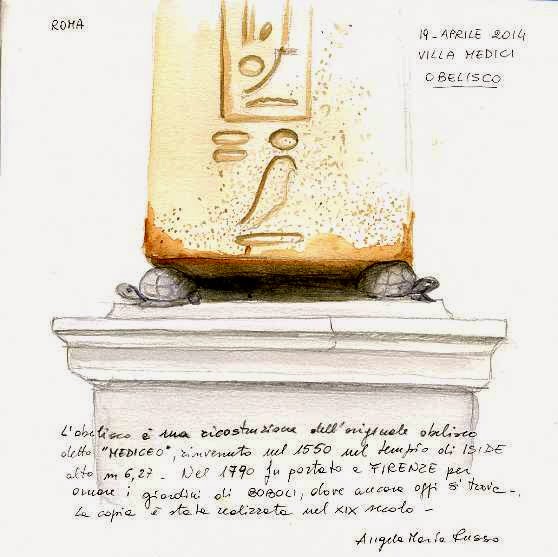 ROMA
19 - APRILE 2014
VILLA MEDICI
OBELISCO
L'obelisco è una ricostruzione dell'originale obelisco
detto "MEDICEO", rinvenuto nel 1550 nel tempio di ISIDE
alto m 6,27. Nel 1790 fu portato a FIRENZE per
ornare i giardini di BOBOLI, dove ancora oggi si trova -.
La copia è stata realizzata nel XIX secolo -
Angela Maria Russo